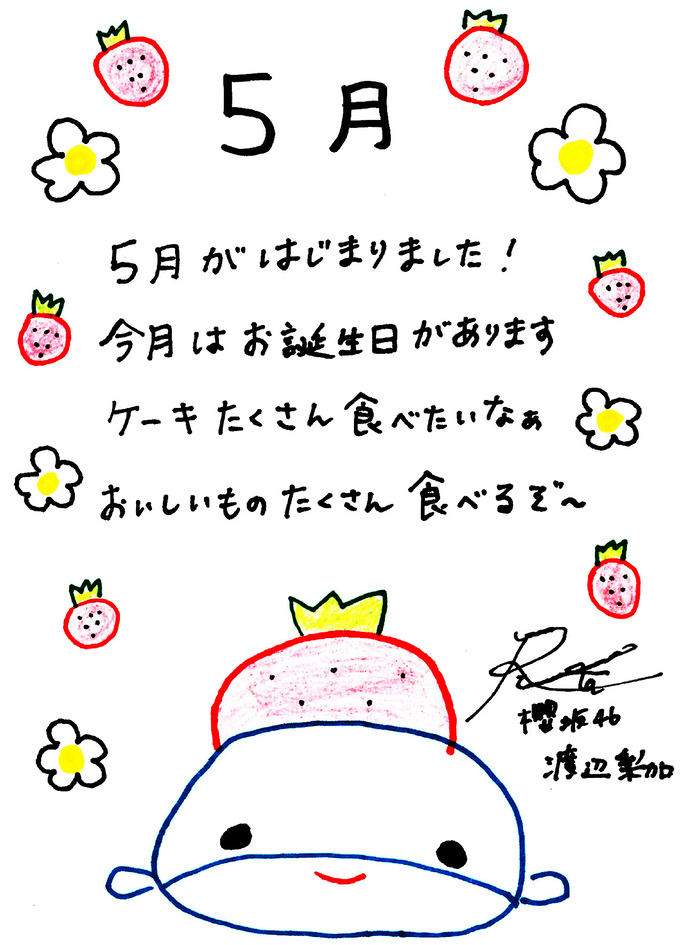 5月
5月がはじまりました!
今月はお誕生日があります
ケーキたくさん食べたいなぁ
おいしいものたくさん食べるぞ〜
櫻坂46
渡辺梨加